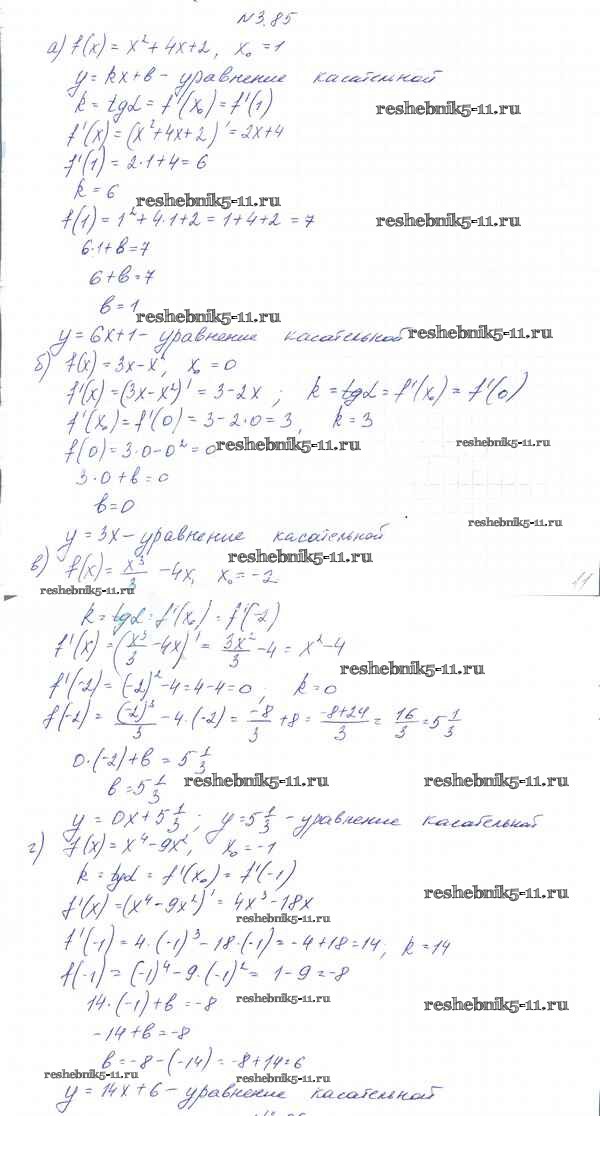 №3.85
а) f(x) = x² + 4x + 2, x₀ = 1
y = kx + в - уравнение касательной
k = tgα = f'(x₀) = f'(1)
reshebnik5-11.ru
f'(x) = (x² + 4x + 2)' = 2x + 4
f'(1) = 2·1 + 4 = 6
k = 6
reshebnik5-11.ru
f(1) = 1² + 4·1 + 2 = 1 + 4 + 2 = 7
reshebnik5-11.ru
6·1 + в = 7
6 + в = 7
в = 1
reshebnik5-11.ru
y = 6x + 1 - уравнение касательной
reshebnik5-11.ru
б) f(x) = 3x - x², x₀ = 0
f'(x) = (3x - x²)' = 3 - 2x ; k = tgα = f'(x₀) = f'(0)
f'(x₀) = f'(0) = 3 - 2·0 = 3, k = 3
f(0) = 3·0 - 0² = 0
reshebnik5-11.ru
reshebnik5-11.ru
3·0 + в = 0
в = 0
reshebnik5-11.ru
y = 3x - уравнение касательной
reshebnik5-11.ru
в) f(x) = x³/3 - 4x, x₀ = -2
11
reshebnik5-11.ru
k = tgα = f'(x₀) = f'(-2)
f'(x) = (x³/3 - 4x)' = 3x²/3 - 4 = x² - 4
reshebnik5-11.ru
f'(-2) = (-2)² - 4 = 4 - 4 = 0 ; k = 0
f(-2) = (-2)³/3 - 4·(-2) = -8/3 + 8 = -8+24/3 = 16/3 = 5 1/3
0·(-2) + в = 5 1/3
reshebnik5-11.ru
reshebnik5-11.ru
в = 5 1/3
y = 0x + 5 1/3 ; y = 5 1/3 - уравнение касательной
г) f(x) = x⁴ - 9x², x₀ = -1
k = tgα = f'(x₀) = f'(-1)
reshebnik5-11.ru
f'(x) = (x⁴ - 9x²)' = 4x³ - 18x
reshebnik5-11.ru
f'(-1) = 4·(-1)³ - 18·(-1) = -4 + 18 = 14; k = 14
f(-1) = (-1)⁴ - 9·(-1)² = 1 - 9 = -8
14·(-1) + в = -8
reshebnik5-11.ru
reshebnik5-11.ru
-14 + в = -8
в = -8 - (-14) = -8 + 14 = 6
reshebnik5-11.ru
reshebnik5-11.ru
y = 14x + 6 - уравнение касательной